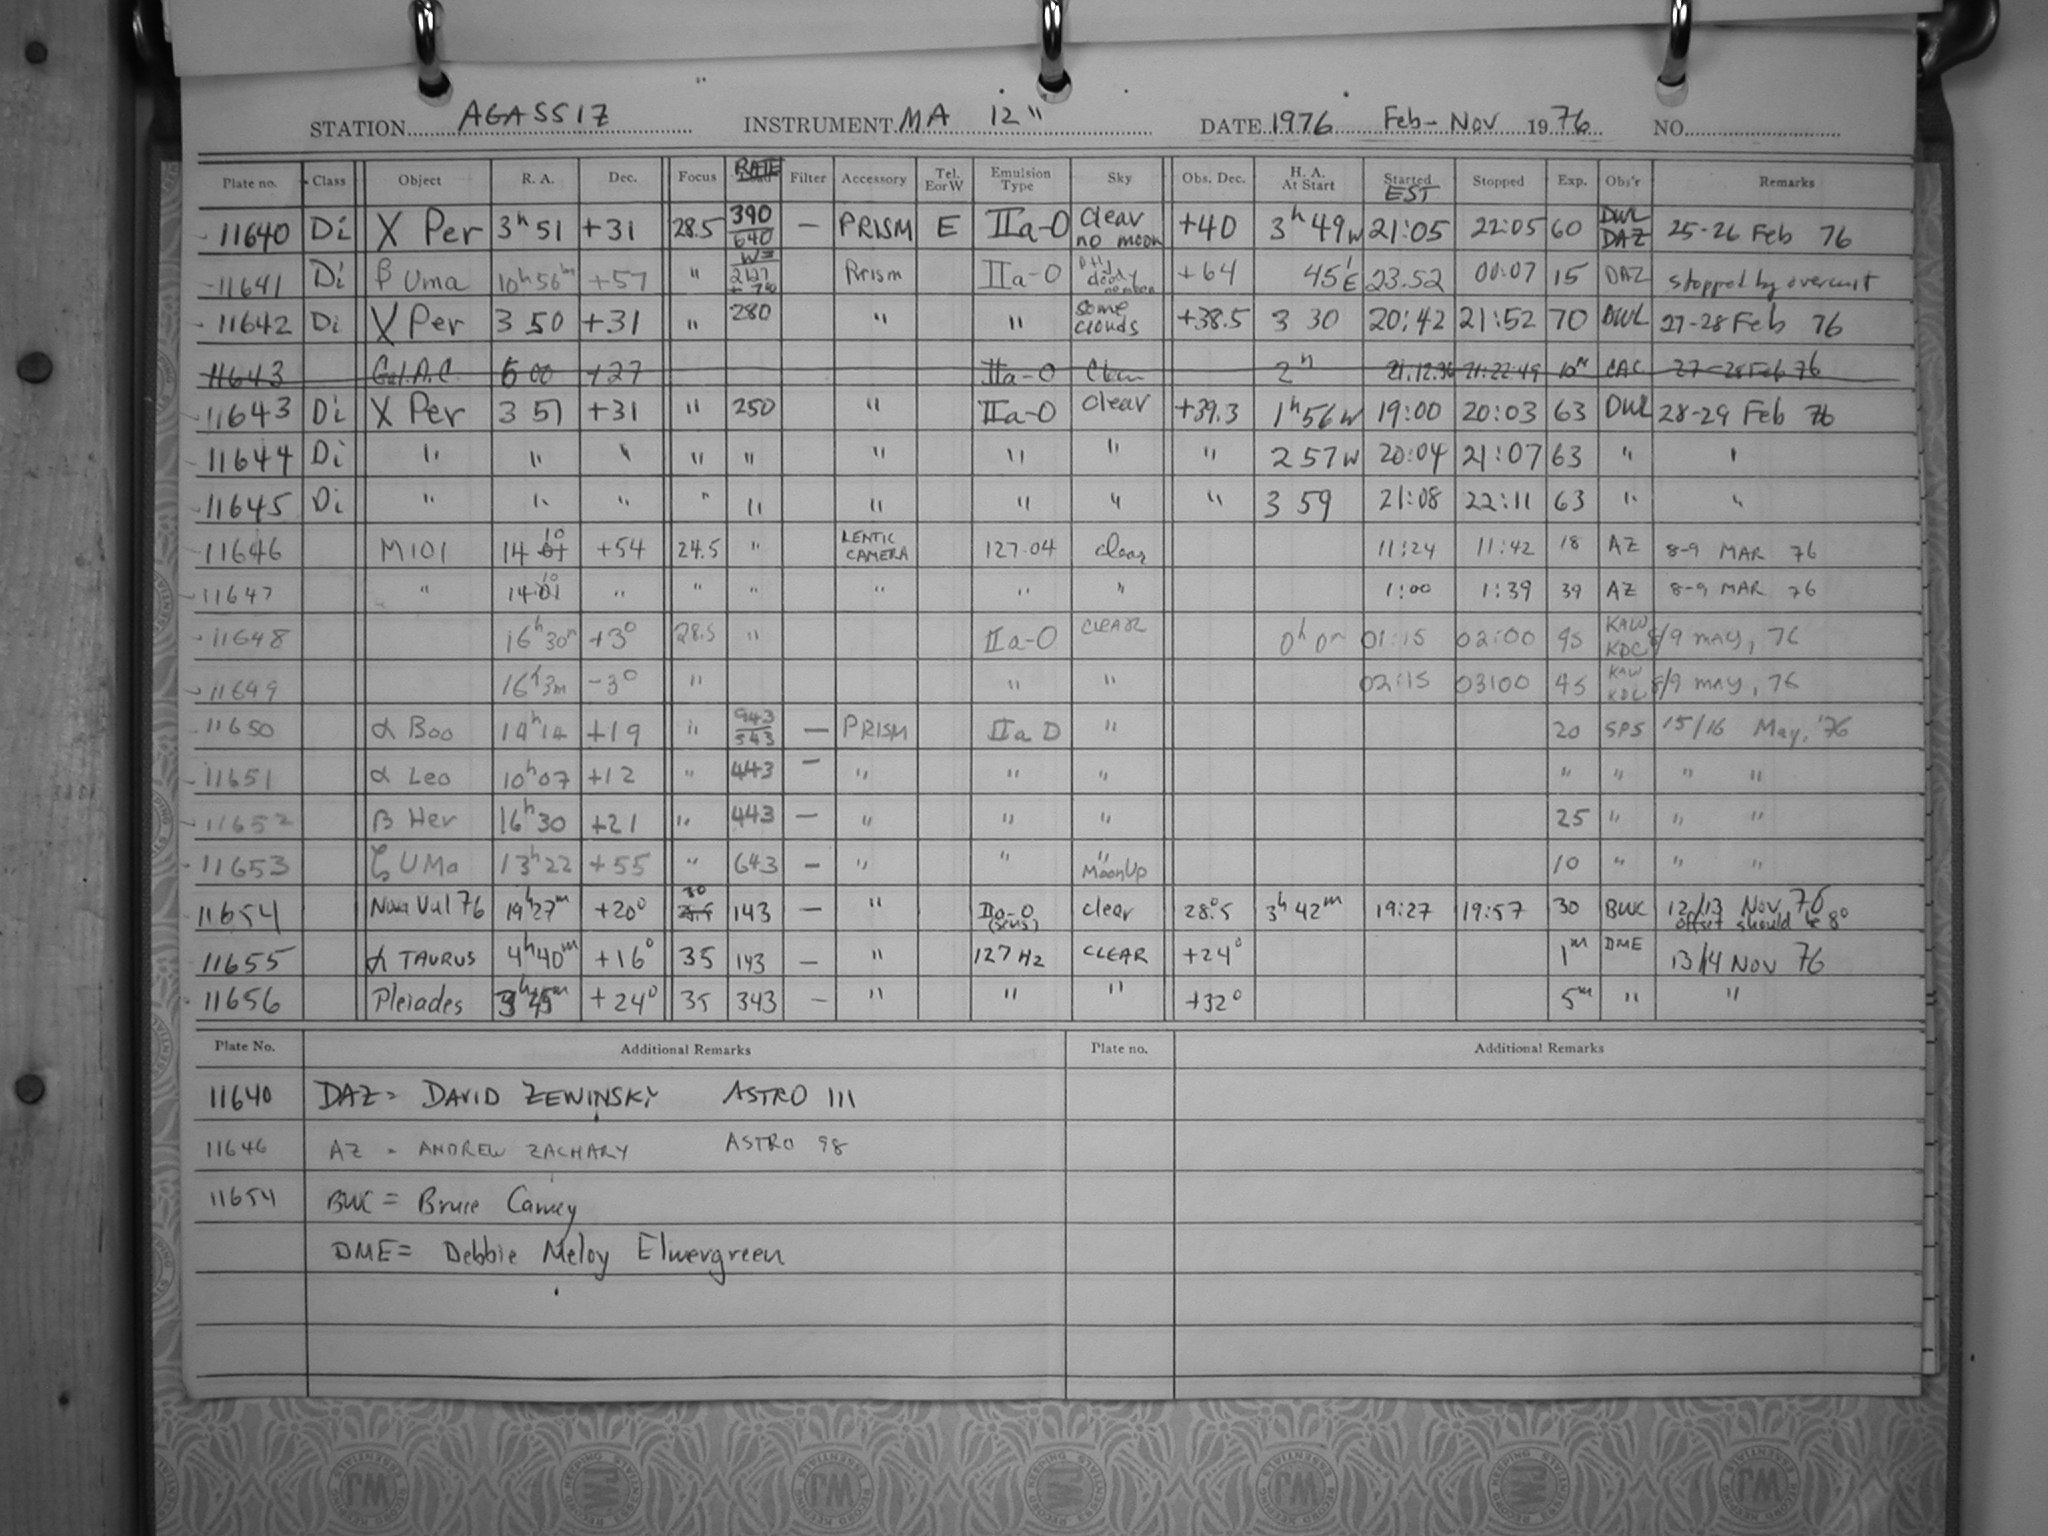 STATION AGASSIZ INSTRUMENT MA 12" DATE 1976 Feb - Nov 1976 NO.
Plate no. Class Object R. A. Dec. Focus RATE Filter Accessory Tel. E or W Emulsion Type Sky Obs. Dec. H. A. At Start Started EST Stopped Exp. Obs'r Remarks
11640 Di X Per 3h 51 +31 28.5 390/640 — PRISM E IIa-O Clear no moon +40 3h 49w 21:05 22:05 60 DWL DAZ 25-26 Feb 76
11641 Di β Uma 10h 56m +57 " Prism IIa-O +64 45' E 23.52 00:07 15 DAZ stopped by overcast
11642 Di X Per 3 50 +31 " 280 " " Some clouds +38.5 3 30 20:42 21:52 70 DWL 27-28 Feb 76
11643 Gal. A.C. 6 00 +27 IIa-O Clear 2h 21.12.36 21:22:49 10m CAC 27-28 Feb 76
11643 Di X Per 3 51 +31 " 250 " IIa-O Clear +39.3 1h 56w 19:00 20:03 63 DWL 28-29 Feb 76
11644 Di " " " " " " " " " 2 57w 20:04 21:07 63 " "
11645 Di " " " " " " " " " 3 59 21:08 22:11 63 " "
11646 M101 14 01 10 +54 24.5 " LENTIC CAMERA 127-04 clear 11:24 11:42 18 AZ 8-9 MAR 76
11647 " 14 01 10 " " " " " " 1:00 1:39 39 AZ 8-9 MAR 76
11648 16h 30m +3° 28.5 " IIa-O CLEAR 0h 0m 01:15 02:00 45 KAW KDC 8/9 MAY, 76
11649 16h 3m -3° " " " 02:15 03:00 45 KAW KDC 8/9 MAY, 76
11650 α Boo 14h 14 +19 " 943/543 — PRISM IIa D " 20 SPS 15/16 May, '76
11651 α Leo 10h 07 +12 " 443 — " " " " " " "
11652 β Her 16h 30 +21 " 443 — " " " 25 " " "
11653 ζ UMa 13h 22 +55 " 643 — " " " Moon Up 10 " " "
11654 Nova Vul 76 19h 27m +20° 30 143 — " IIa-O (sens) clear 28.5° 3h 42m 19:27 19:57 30 BWC 12/13 Nov 76 offset should be 8°
11655 α TAURUS 4h 40m +16° 35 143 — " 127 Hz CLEAR +24° 1m DME 13/14 Nov 76
11656 Pleiades 3h 45m +24° 35 343 — " " " +32° 5m " "
Plate No. Additional Remarks Plate no. Additional Remarks
11640 DAZ = DAVID ZEWINSKY ASTRO 111
11646 AZ = ANDREW ZACHARY ASTRO 98
11654 BWC = Bruce Carney
DME = Debbie Meloy Elmergreen